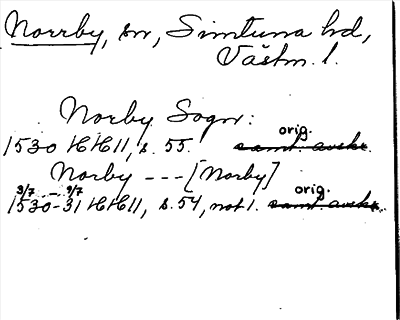 Norrby, sn, Simtuna hd,
Västm. l.
Norby Sogn:
orig.
1530 HH11, s. 55. samt. avskr.
Norby --- [Norby]
3/7 — 9/7 orig.
1530-31 HH11, s. 54, not 1. samt. avskr.